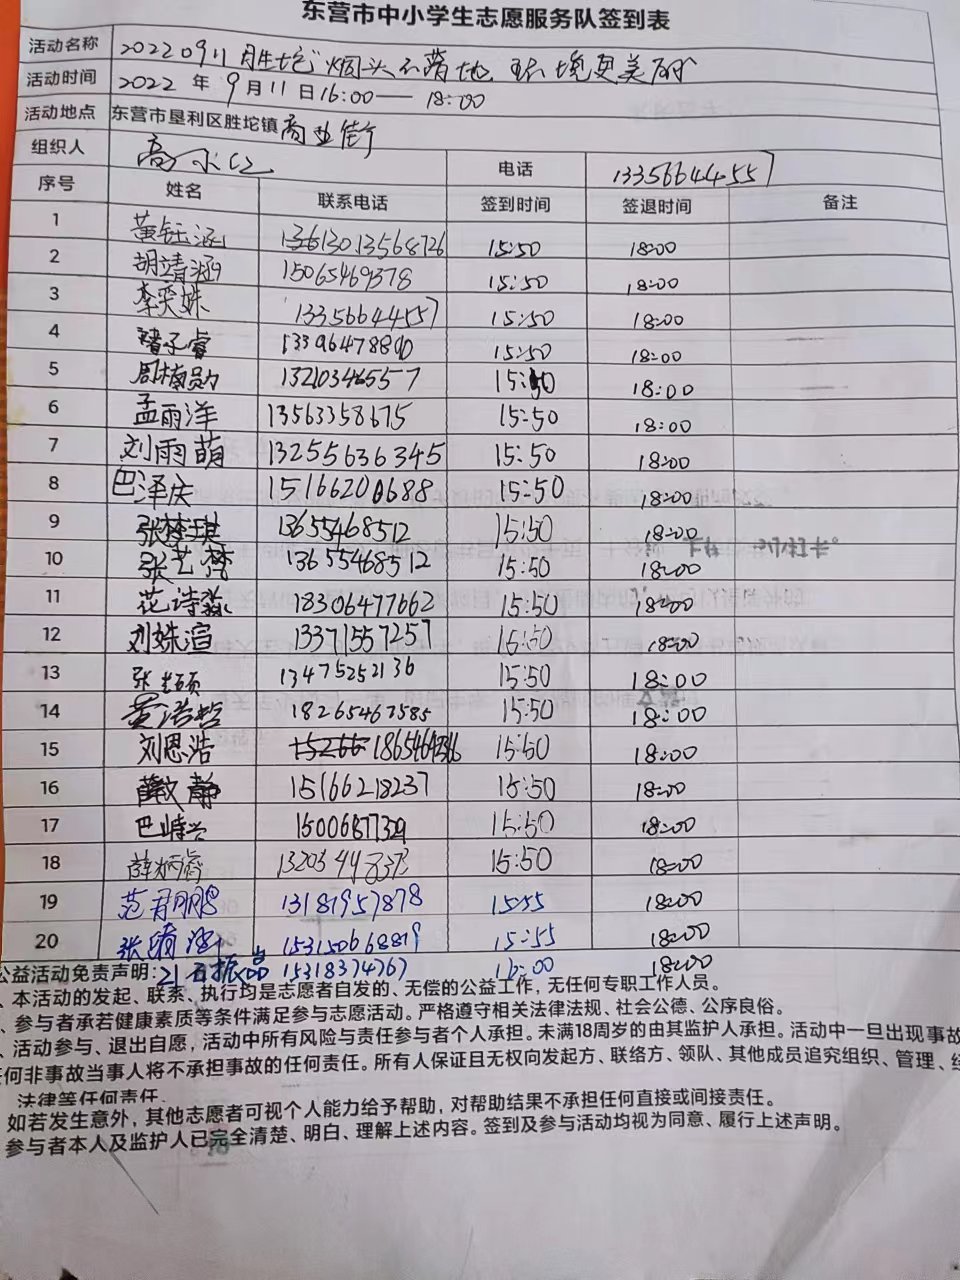 东营市中小学生志愿服务队签到表
活动名称 20220911胜坨"烟头不落地 环境更美丽"
活动时间 2022年9月11日16:00——18:00
活动地点 东营市垦利区胜坨镇商业街
组织人 高永红 电话 13356644557
序号 姓名 联系电话 签到时间 签退时间 备注
1 黄钰涵 13568726 15:50 18:00
2 胡靖涵 15065469378 15:50 18:00
3 李奕姝 13356644557 15:50 18:00
4 褚子睿 13396478890 15:50 18:00
5 周楠勋 13210346557 15:50 18:00
6 孟雨洋 13563358675 15:50 18:00
7 刘雨萌 13255636345 15:50 18:00
8 巴泽庆 15166200688 15:50 18:00
9 张梦琪 13655468512 15:50 18:00
10 张艺梦 13655468512 15:50 18:00
11 花诗淼 18306477662 15:50 18:00
12 刘姝渲 13371557257 15:50 18:00
13 张 13475252136 15:50 18:00
14 黄浩哲 18265467585 15:50 18:00
15 刘恩浩 15266 15:50 18:00
16 薛文静 15166218237 15:50 18:00
17 巴峙兴 15006877329 15:50 18:00
18 薛炳睿 15:50 18:00
19 范 13181957878 15:55 18:00
20 张靖涵 153150668819 15:55 18:00
公益活动免责声明: 21 石振品 15318374767 16:00 18:00
、本活动的发起、联系、执行均是志愿者自发的、无偿的公益工作，无任何专职工作人员。
、参与者承若健康素质等条件满足参与志愿活动。严格遵守相关法律法规、社会公德、公序良俗。
、活动参与、退出自愿，活动中所有风险与责任参与者个人承担。未满18周岁的由其监护人承担。活动中一旦出现事故
任何非事故当事人将不承担事故的任何责任。所有人保证且无权向发起方、联络方、领队、其他成员追究组织、管理、经
法律等任何责任.
如若发生意外，其他志愿者可视个人能力给予帮助，对帮助结果不承担任何直接或间接责任。
参与者本人及监护人已完全清楚、明白、理解上述内容。签到及参与活动均视为同意、履行上述声明。